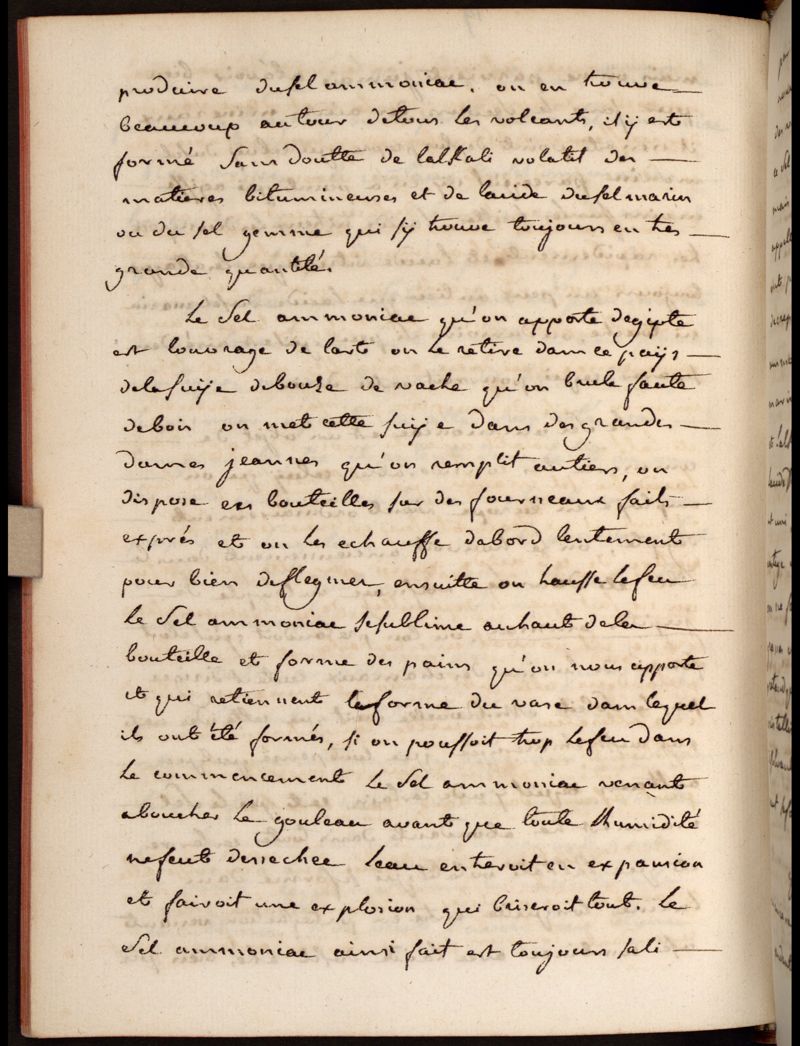 produire du sel ammoniac. on en trouve
beaucoup autour de tous les volcants, il y est
formé sans doutte de lalkali volatil des
matieres bitumineuses et de lacide du sel marin
ou du sel gemme qui s'y trouve toujours en tres
grande quantité.
Le sel ammoniac qu'on apporte degipte
est louvrage de lart on le retire dans ce pays
de la suije de bouze de vache qu'on brule faute
de bois on met cette suije dans des grandes
dames jeannes qu'on remplit au tiers, on
dispose ces bouteilles sur des fourneaux faits
exprés et on les echauffe dabord lentement
pour bien deflegmer, ensuitte on hausse le feu
le sel ammoniac se sublime au haut de la
bouteille et forme des pains qu'on nous apporte
et qui retiennent la forme du vase dans lequel
ils ont été formés, si on poussoit trop le feu dans
le commencement le sel ammoniac venant
a boucher le gouleau avant que toute lhumidité
ne feut dessechee leau entreroit en expansion
et fairoit une explosion qui briseroit tout. Le
sel ammoniac ainsi fait est toujours sali